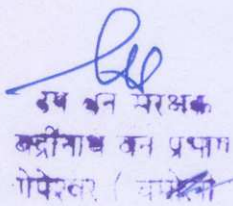 उप वन संरक्षक
बद्रीनाथ वन प्रभाग
गोपेश्वर ( चमोली